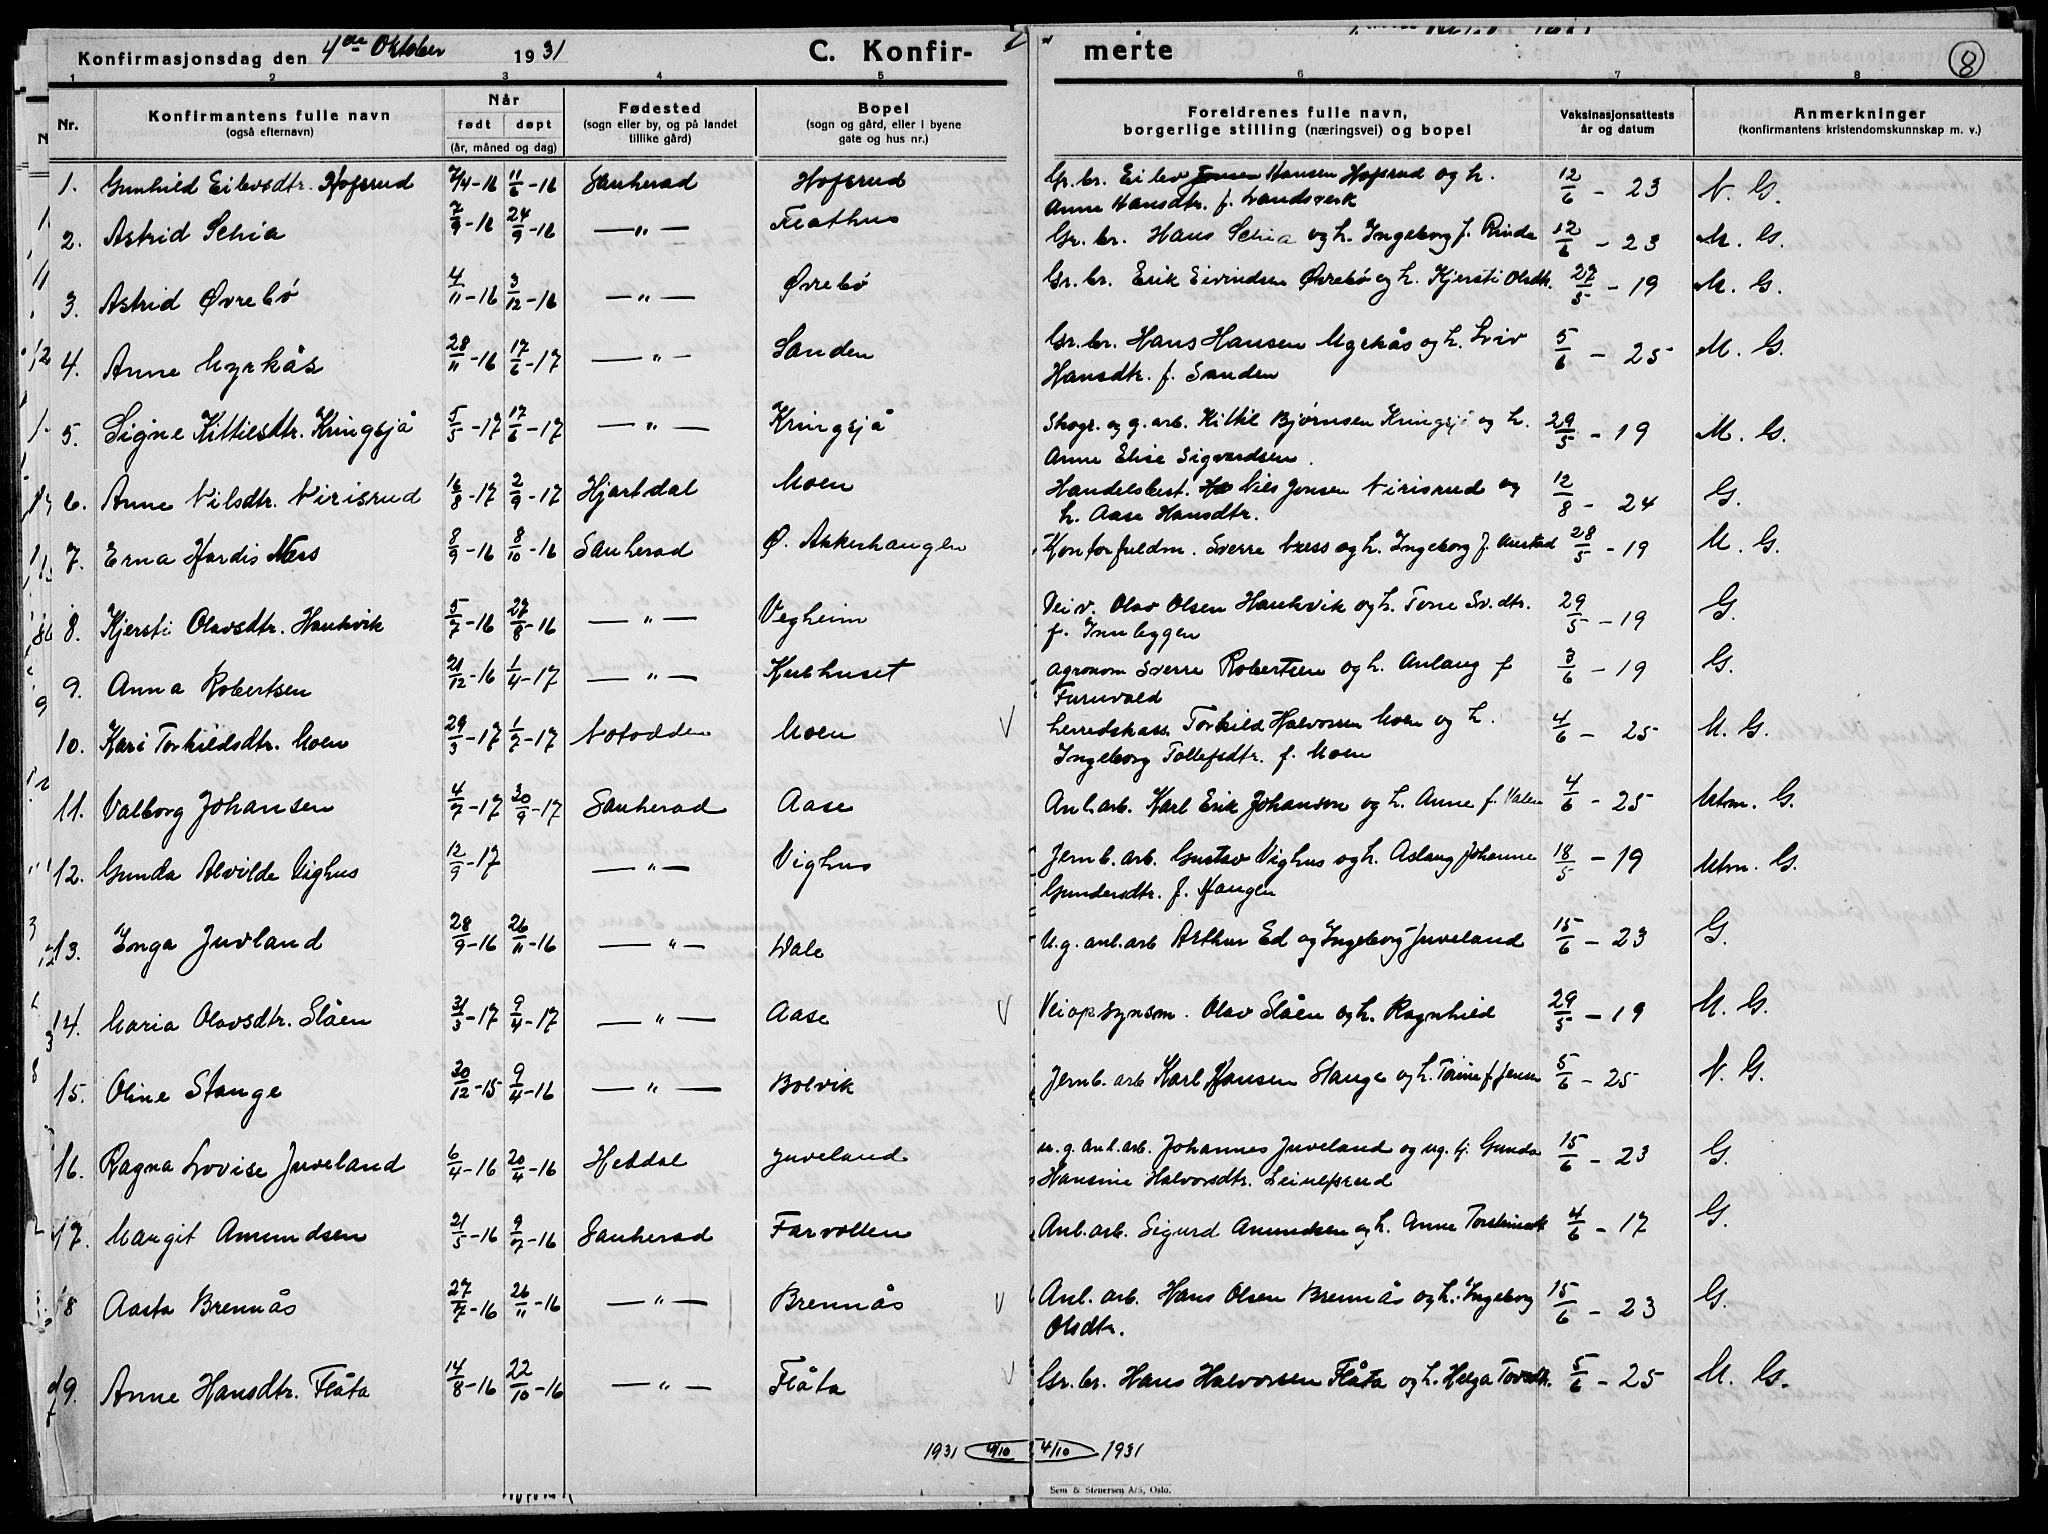 Konfirmasjonsdag den 4de Oktober 1931 C. Konfir- merte 8
1 2 3 4 5 6 7 8
Nr. Konfirmantens fulle navn (også efternavn) Når født døpt (år, måned og dag) Fødested (sogn eller by, og på landet tillike gård) Bopel (sogn og gård, eller i byene gate og hus nr.) Foreldrenes fulle navn, borgerlige stilling (næringsvei) og bopel Vaksinasjonsattests år og datum Anmerkninger (konfirmantens kristendomskunnskap m. v.)
1. Gunhild Eilevsdtr. Hofsrud 7/4-16 11/6-16 Sauherad Hofsrud Gr. br. Eilev Jonsen Hansen Hofsrud og h. 12/6 - 23 N. G.
Anne Hansdtr. f. Landsverk
2. Astrid Schia 7/9-16 24/9-16 —„— Flathus Gr. br. Hans Schia og h. Ingeborg f. Rinde 12/6 - 23 M. G.
3. Astrid Øvrebø 4/11-16 3/12-16 —„— Øvrebø Gr. br. Erik Eivindsen Øvrebø og h. Kjersti Olsdtr. 27/5 - 19 M. G.
4. Anne Myrkås 28/11-16 17/6-17 —„— Sanden Gr. br. Hans Hansen Myrkås og h. Liv 5/6 - 25 M. G.
Hansdtr. f. Sanden
5. Signe Kittilsdtr. Kringsjå 5/5-17 17/6-17 —„— Kringsjå Skogs. og g. arb. Kittil Bjørnsen Kringsjå og h. 29/5 - 19 M. G.
Anne Elise Sigvardsen.
6. Anne Nilsdtr. Nirisrud 16/8-17 2/9-17 Hjartdal Moen Handelsbest. Nils Jonsen Nirisrud og 12/8 - 24 G.
h. Aase Hansdtr.
7. Erna Hardis Næss 8/9-16 8/10-16 Sauherad Ø. Akkerhaugen Kontorfuldm. Sverre Næss og h. Ingeborg f. Austad 28/5 - 19 M. G.
8. Kjersti Olavsdtr. Haukvik 5/7-16 27/8-16 —„— Vegheim Veiv. Olav Olsen Haukvik og h. Tone Sv.dtr. 29/5 - 19 G.
f. Innleggen
9. Anna Robertsen 21/12-16 1/4-17 —„— Kubhuset agronom Sverre Robertsen og h. Anlaug f 3/6 - 19 G.
Furuvald
10. Kari Torkildsdtr. Moen 29/3-17 1/7-17 Notodden Moen Herredskass. Torkild Halvorsen Moen og h. 4/6 - 25 M. G.
Ingeborg Tollefsdtr. f. Moen
11. Valborg Johansen 4/7-17 30/9-17 Sauherad Aase Anl. arb. Karl Erik Johanson og h. Anne f. Valen 4/6 - 25 Utm. G.
12. Gunda Alvilde Vighus 12/9-17 —„— Vighus Jernb. arb. Gustav Vighus og h. Aslaug Johanne 18/5 - 19 Utm. G.
Gundersdtr. f. Haugen
13. Inga Juvland 28/9-16 26/11-16 —„— Wale U. g. anl. arb Arthur Ed og Ingeborg Juveland 15/6 - 23 G.
14. Maria Olavsdtr. Slåen 31/3-17 9/4-17 —„— Aase Veiopsynsm. Olav Slåen og h. Ragnhild 29/5 - 19 M. G.
15. Oline Stange 30/12-15 9/4-16 —„— Bolvik Jernb. arb Karl Hansen Stange og h. Torine f. Jensen 5/6 - 25 N. G.
16. Ragna Lovise Juveland 6/4-16 20/4-16 Heddal Juveland u. g. anl. arb. Johannes Juveland og ug. kj. Gunda 15/6 - 23 G.
Hansine Halvorsdtr.
17. Margit Amundsen 21/5-16 9/7-16 Sauherad Farvollen Anl. arb. Sigurd Amundsen og h. Anne 4/6 - 17 G.
18 Aasta Brennås 27/7-16 26/11-16 —„— Brennås Anl. arb. Hans Olsen Brennås og h. Ingeborg 15/6 - 23 G.
Olsdtr.
19. Anne Hansdtr. Flåta 14/8-16 22/10-16 —„— Flåta Gr. br. Hans Halvorsen Flåta og h. Helga Tovsdtr. 5/6 - 25 M. G.
1931 4/10 4/10 1931
Sem & Stenersen A/S, Oslo.